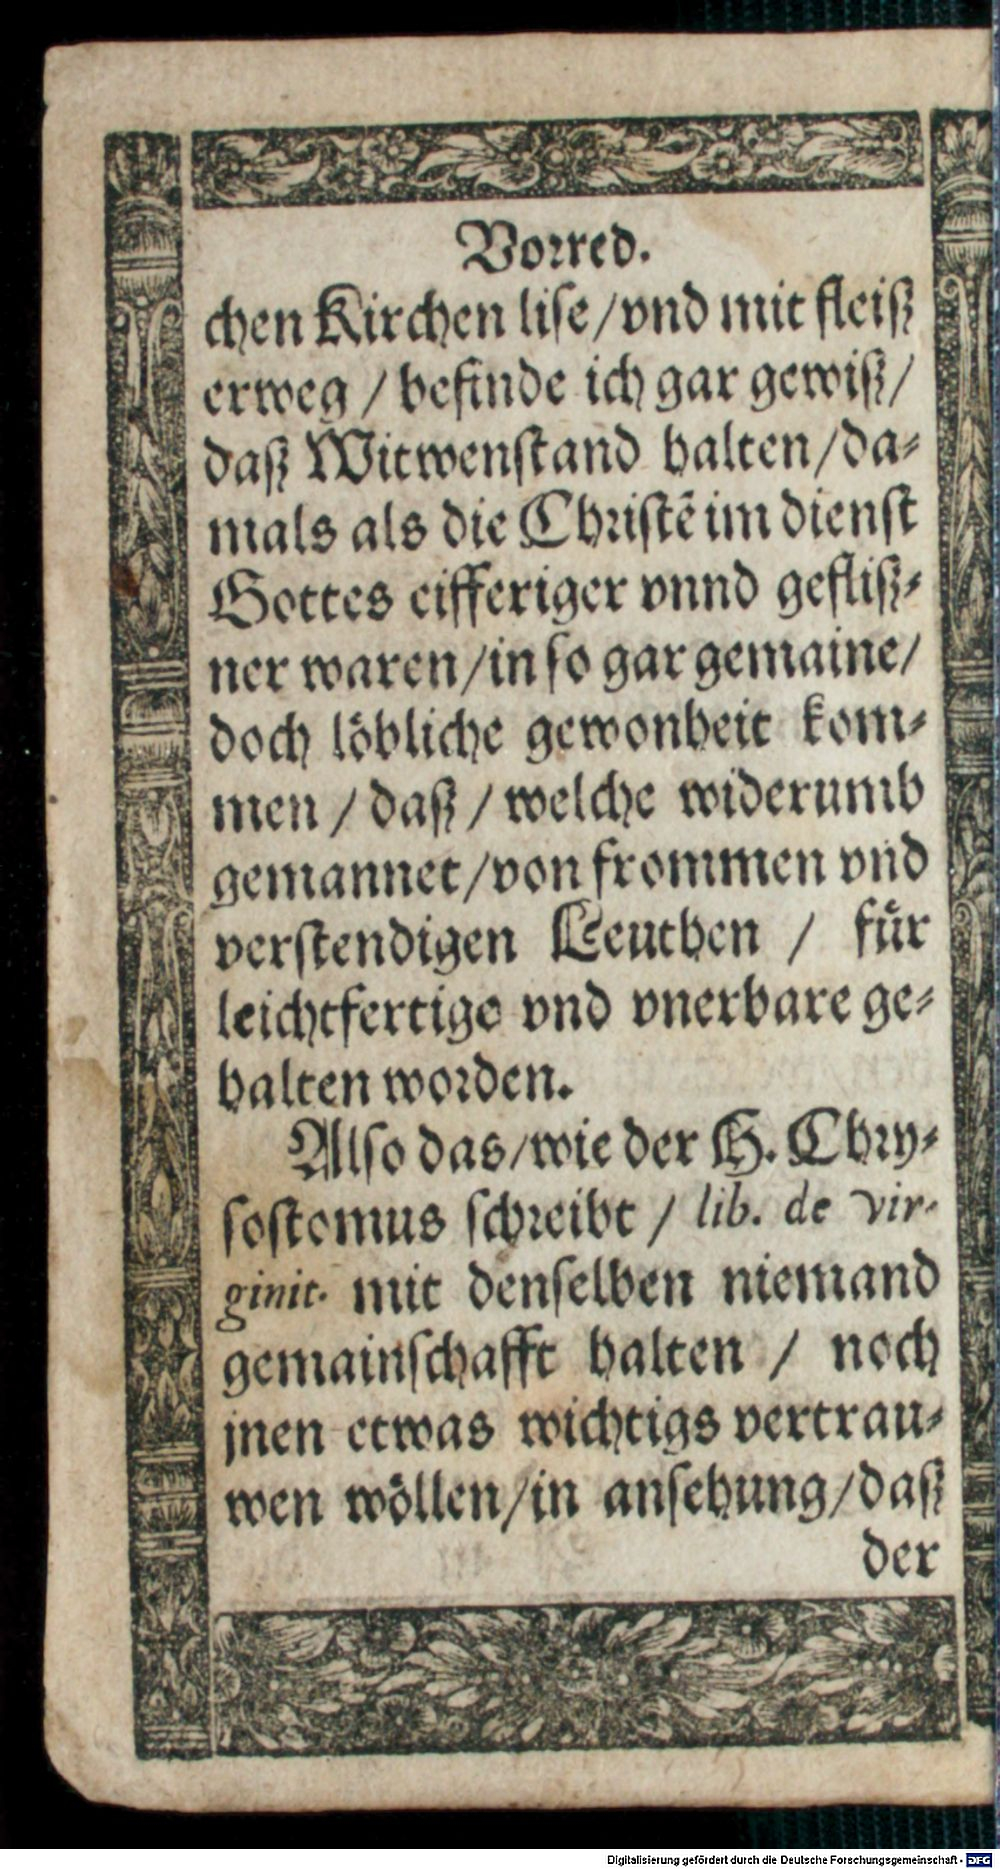 Vorred.
chen Kirchen lise / vnd mit fleiß
erweg / befinde ich gar gewiß /
daß Witwenstand halten / da-
mals als die Christẽ im dienst
Gottes eifferiger vnnd gefliß-
ner waren / in so gar gemaine /
doch löbliche gewonheit kom-
men / daß / welche widerumb
gemannet / von frommen vnd
verstendigen Leuthen / für
leichtfertige vnd vnerbare ge-
halten worden.
Also das / wie der H. Chry-
sostomus schreibt / lib. de vir-
ginit. mit denselben niemand
gemainschafft halten / noch
jnen etwas wichtigs vertrau-
wen wöllen / in ansehung / daß
der
Digitalisierung gefördert durch die Deutsche Forschungsgemeinschaft - DFG